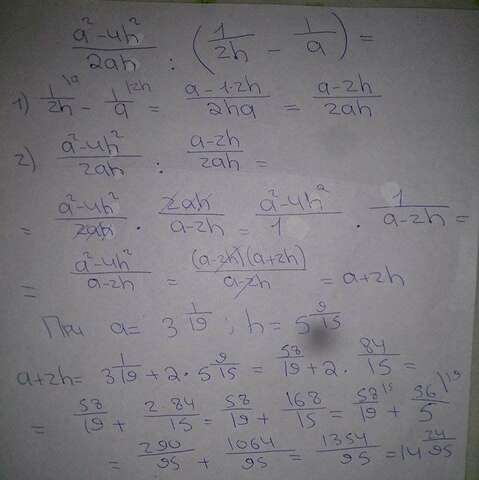 (a²-4h²)/(2ah) : (1/(2h) - 1/a) =
1) 1/(2h) \a - 1/a \2h = (a-1·2h)/(2ha) = (a-2h)/(2ah)
2) (a²-4h²)/(2ah) : (a-2h)/(2ah) =
= (a²-4h²)/(2ah) · (2ah)/(a-2h) = (a²-4h²)/1 · 1/(a-2h) =
= (a²-4h²)/(a-2h) = ((a-2h)(a+2h))/(a-2h) = a+2h
При a= 3 1/19 ; h= 5 9/15
a+2h= 3 1/19 + 2 · 5 9/15 = 58/19 + 2 · 84/15 =
= 58/19 + (2·84)/15 = 58/19 + 168/15 = 58/19 \15 + 56/5 \19
= 290/95 + 1064/95 = 1354/95 = 14 24/95